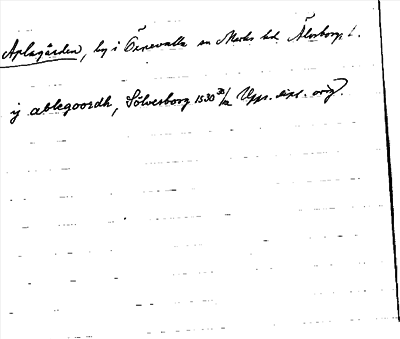 Aplagården, by i Öxnevalla sn Marks hd. Älvsborgs l.
ij ablegoordh, Sölvesborg 1530 30/12 Upps. dipl. orig.